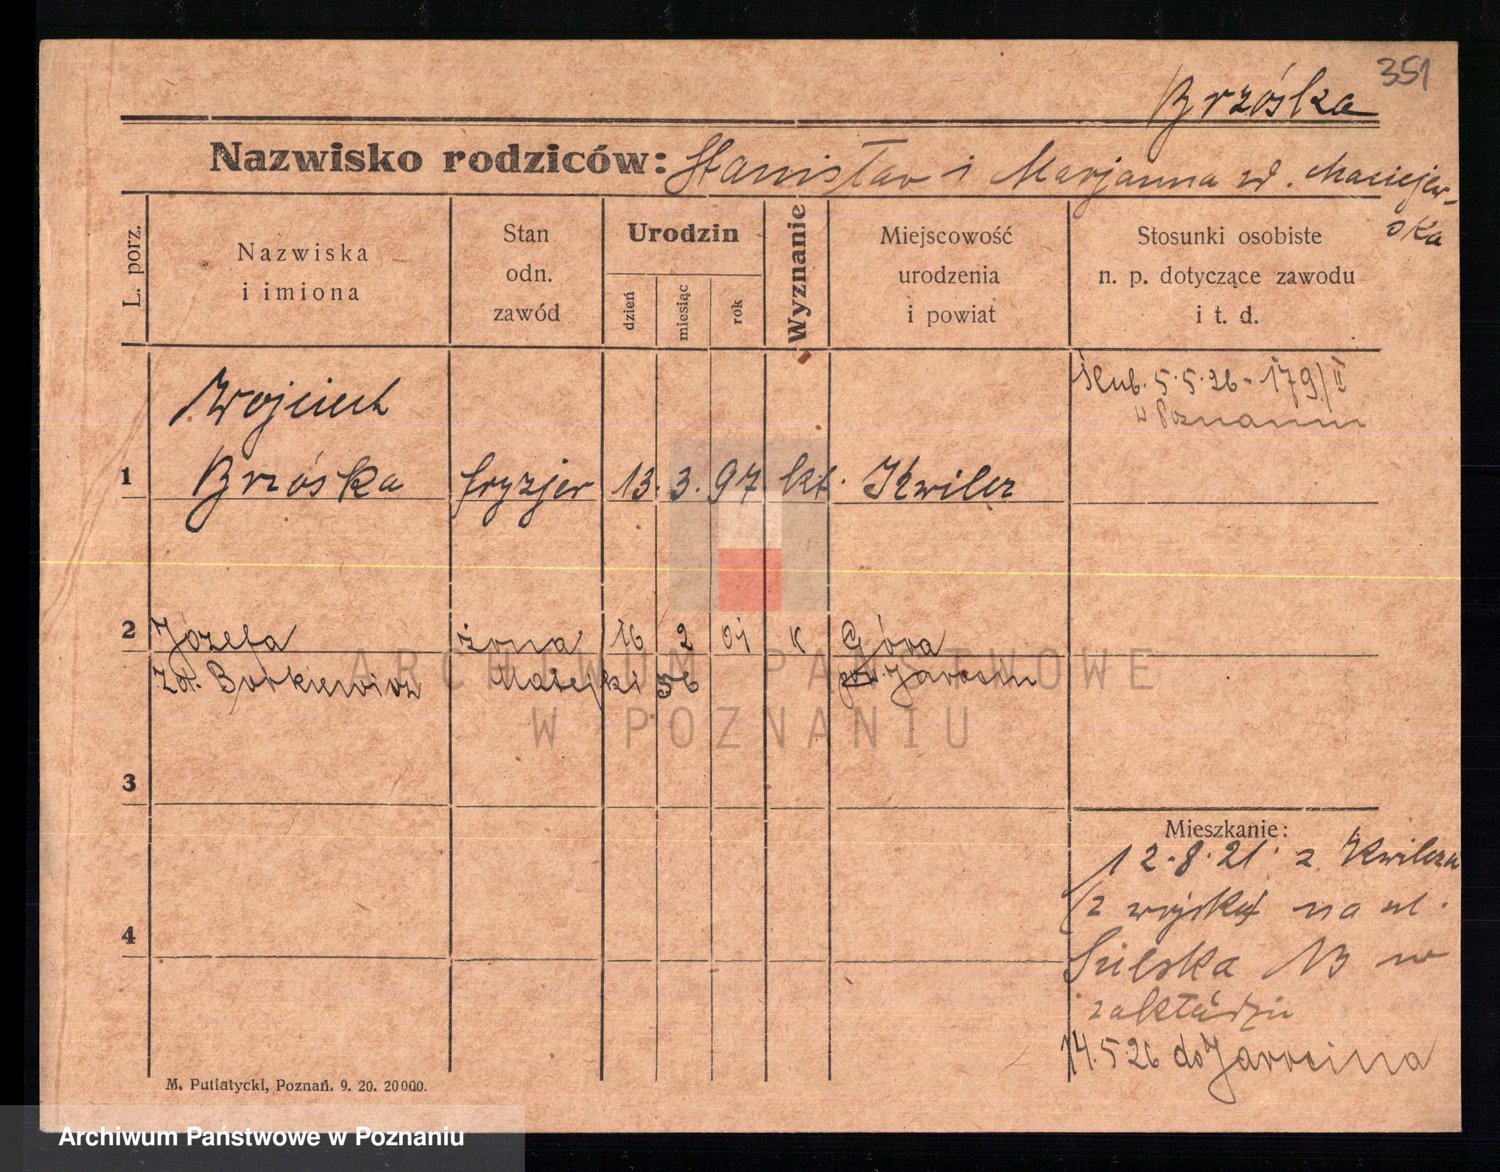 351
Brzóska
Nazwisko rodziców: Stanisław i Marjanna zd. Maciejew-
ska
L. porz.
Nazwiska
i imiona
Stan
odn.
zawód
Urodzin
dzień
miesiąc
rok
Wyznanie
Miejscowość
urodzenia
i powiat
Stosunki osobiste
n. p. dotyczące zawodu
i t. d.
ślub. 5.5.26 - 179/II
w Poznaniu
Wojciech
1 Brzóska fryzjer 13. 3. 97 kt. Kwilcz
2 Józefa żona 16 2 01 K Góra
zd. Matejki 56 Jarocin
3
4
Mieszkanie:
12.8.21. z Kwilcza
(z wojska) na ul.
13 w
zakładzie
14.5.26 do Jarocina
M. Putiatycki, Poznań. 9. 20. 20000.
ARCHIWUM PAŃSTWOWE
W POZNANIU
Archiwum Państwowe w Poznaniu